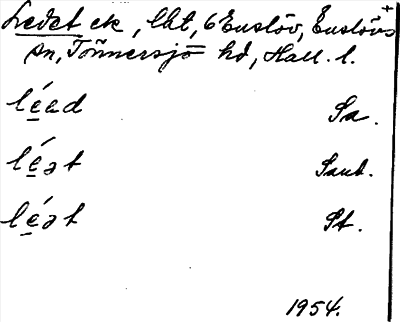 Ledet ek, lht, 6 Enslöv, Enslövs +
sn, Tönnersjö hd, Hall. l.
léad Sa.
léat Sant.
léat St.
1954.